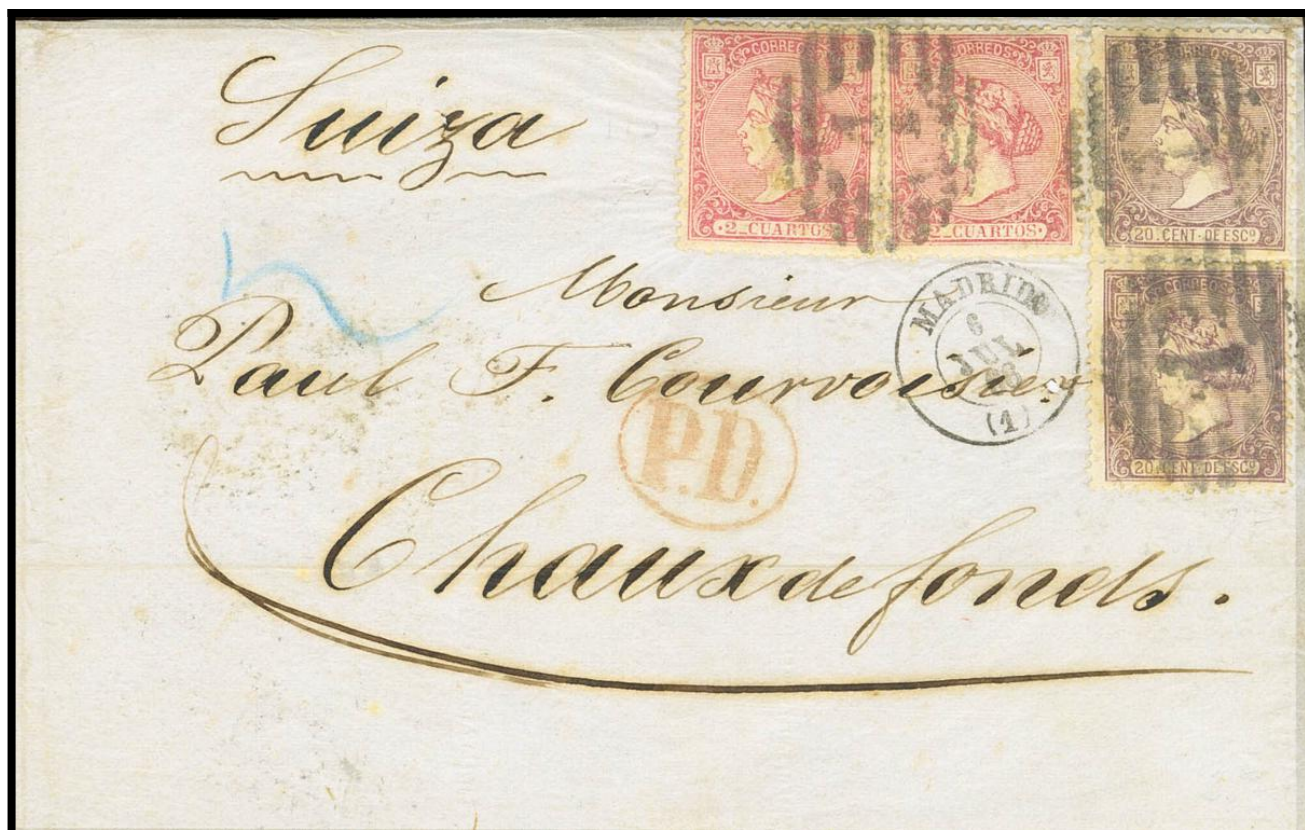 Suiza
CORREOS
2 CUARTOS
CORREOS
2 CUARTOS
CORREOS
20 CENT. DE ESCO
CORREOS
20 CENT. DE ESCO
Monsieur
MADRID
6
JUL
(1)
Paul F. Courvoisier
P.D.
Chaux de fonds.